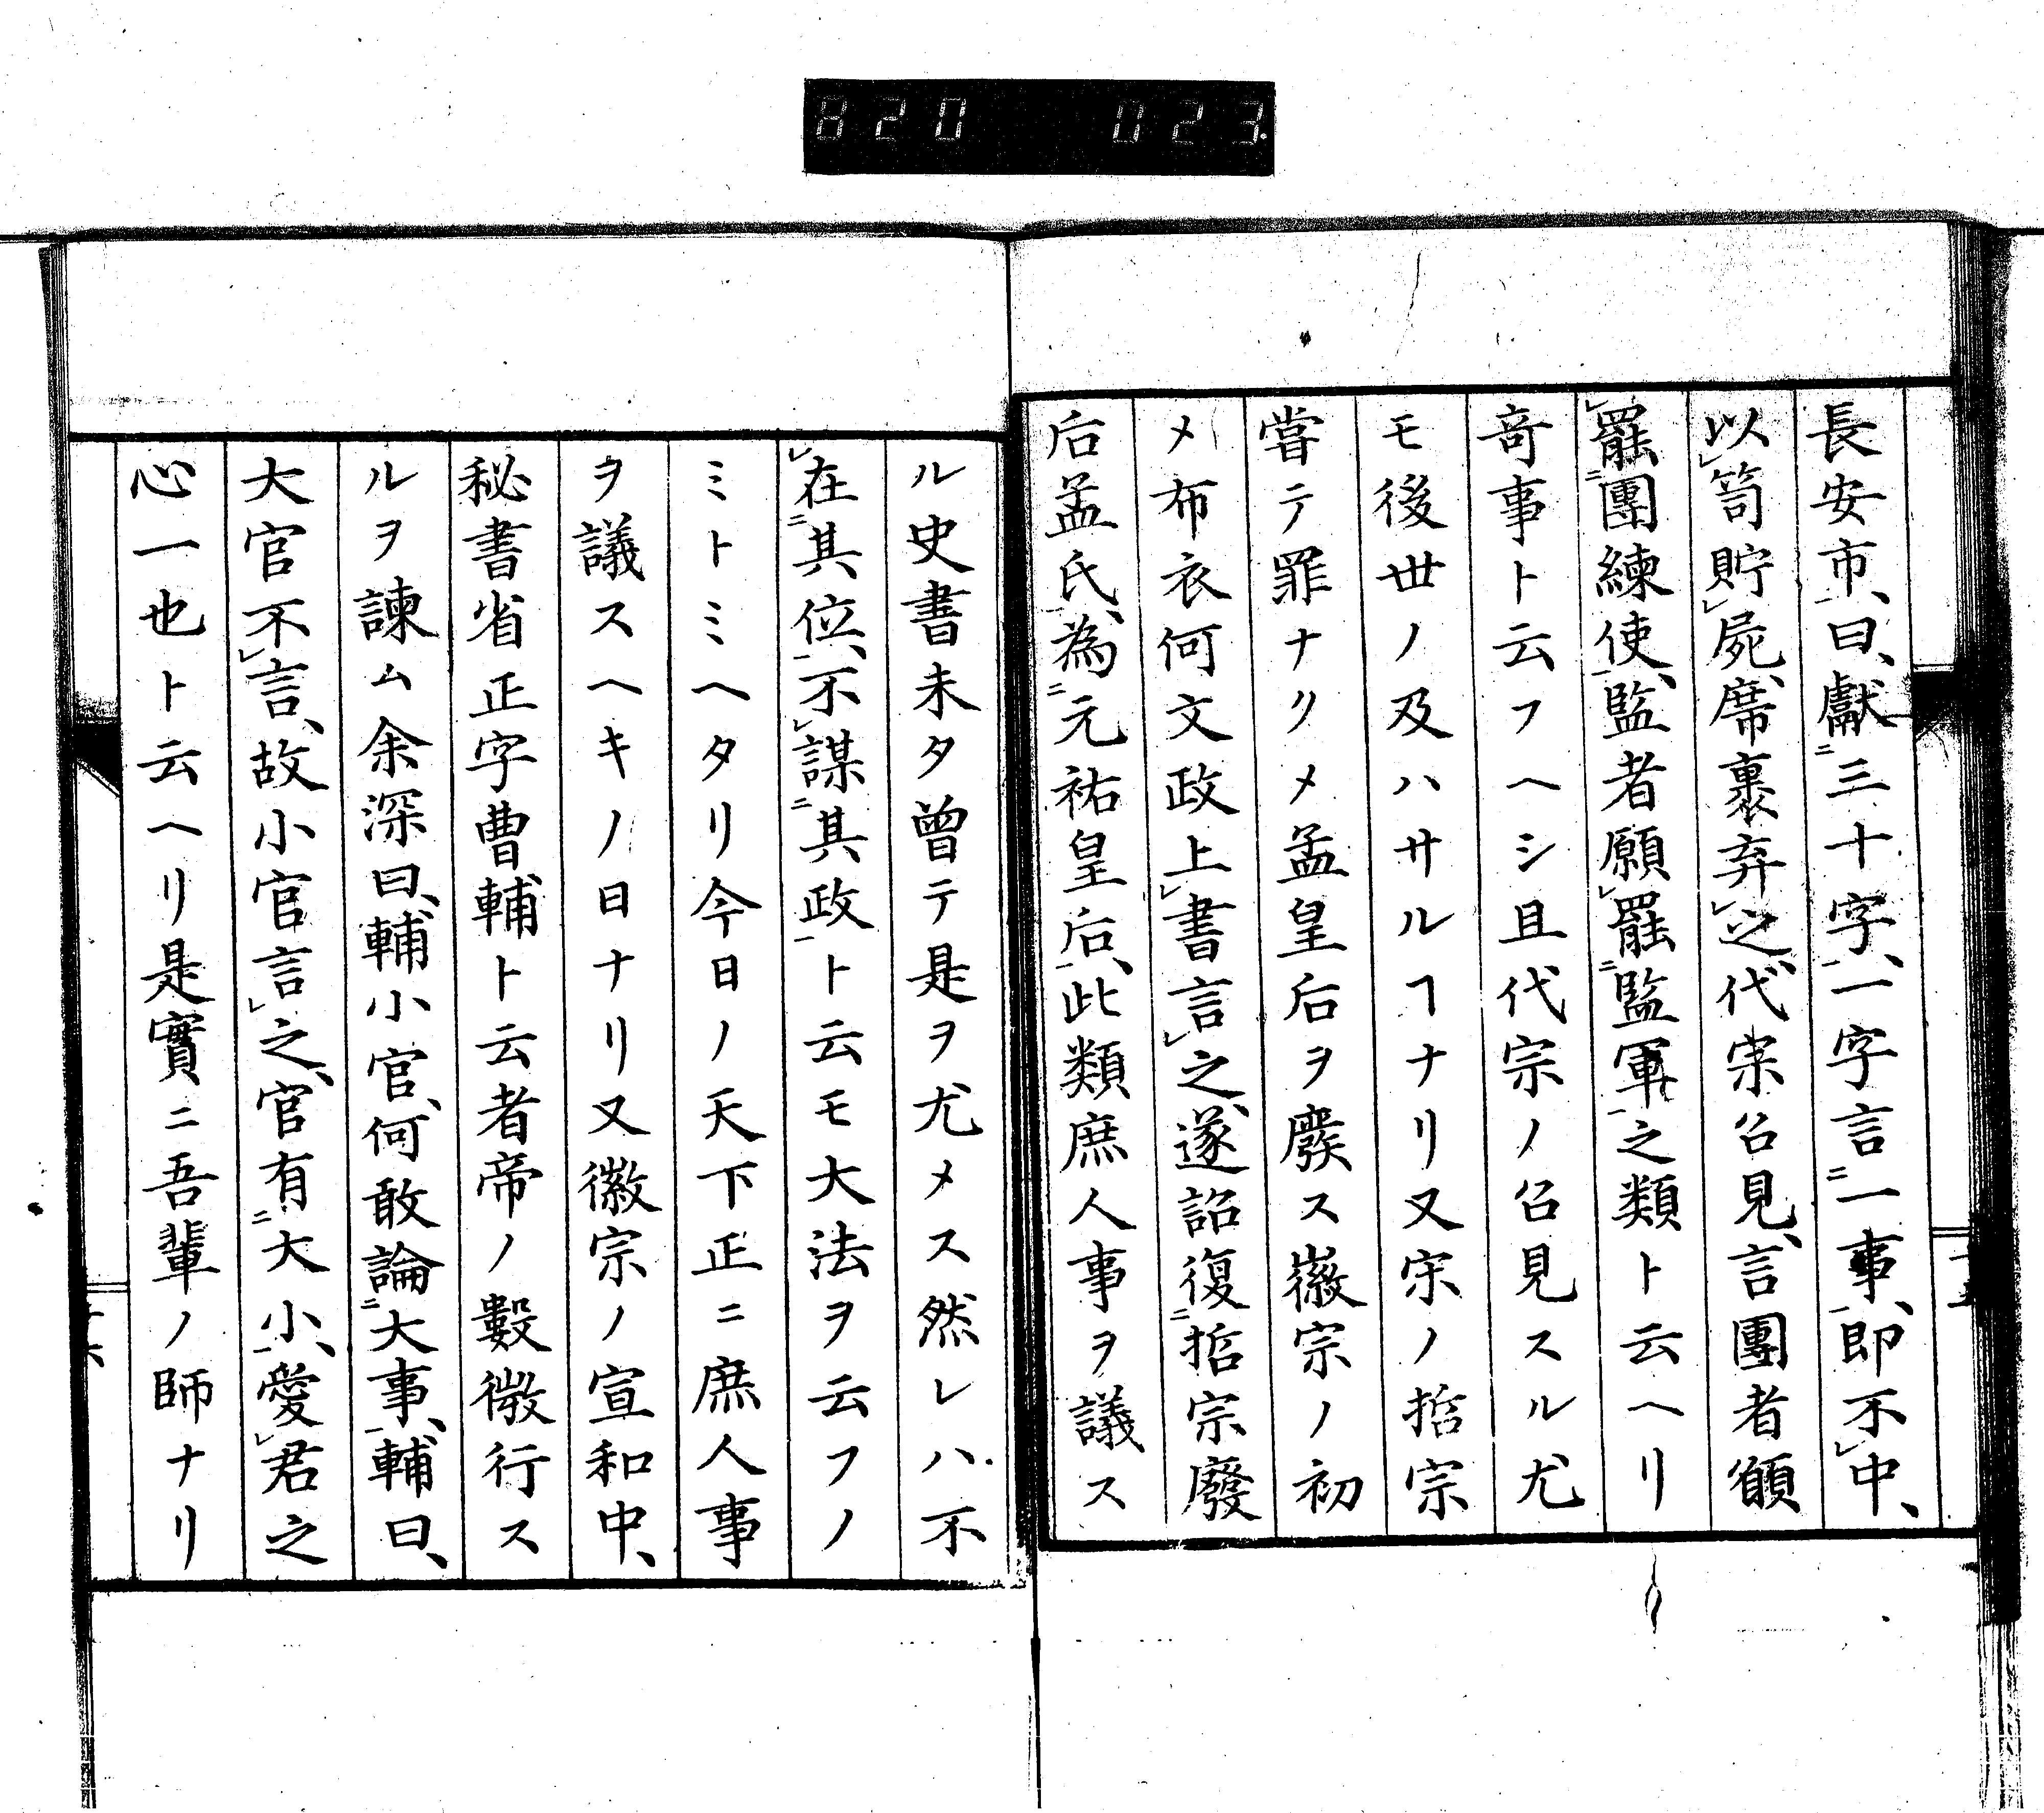 820 023.
長安市、曰、獻㆓三十字、㆒一字言㆓一事、㆒即不㆑中、
以㆑笥貯㆑屍、席裹弃㆑之、代宗召見、言團者願
㆑罷㆓團練使、㆒監者願㆑罷㆓監軍㆒之類ト云ヘリ
奇事ト云フヘシ且代宗ノ召見スル尤
モ後世ノ及ハサルヿナリ又宋ノ哲宗
嘗テ罪ナクメ孟皇后ヲ廢ス徽宗ノ初
メ布衣何文政上㆑書言㆑之、遂詔復㆓哲宗廢
后孟氏、㆒為㆓元祐皇后、㆒此類庶人事ヲ議ス
ル史書未タ曾テ是ヲ尤メス然レハ不
㆑在㆓其位、㆒不㆑謀㆓其政㆒ト云モ大法ヲ云フノ
ミトミヘタリ今日ノ天下正ニ庶人事
ヲ議スヘキノ日ナリ又徽宗ノ宣和中、
秘書省正字曹輔ト云者帝ノ數微行ス
ルヲ諫ム余深曰、輔小官、何敢論㆓大事、㆒輔曰、
大官不㆑言、故小官言㆑之、官有㆓大小、㆒愛㆑君之
心一也ト云ヘリ是實ニ吾輩ノ師ナリ